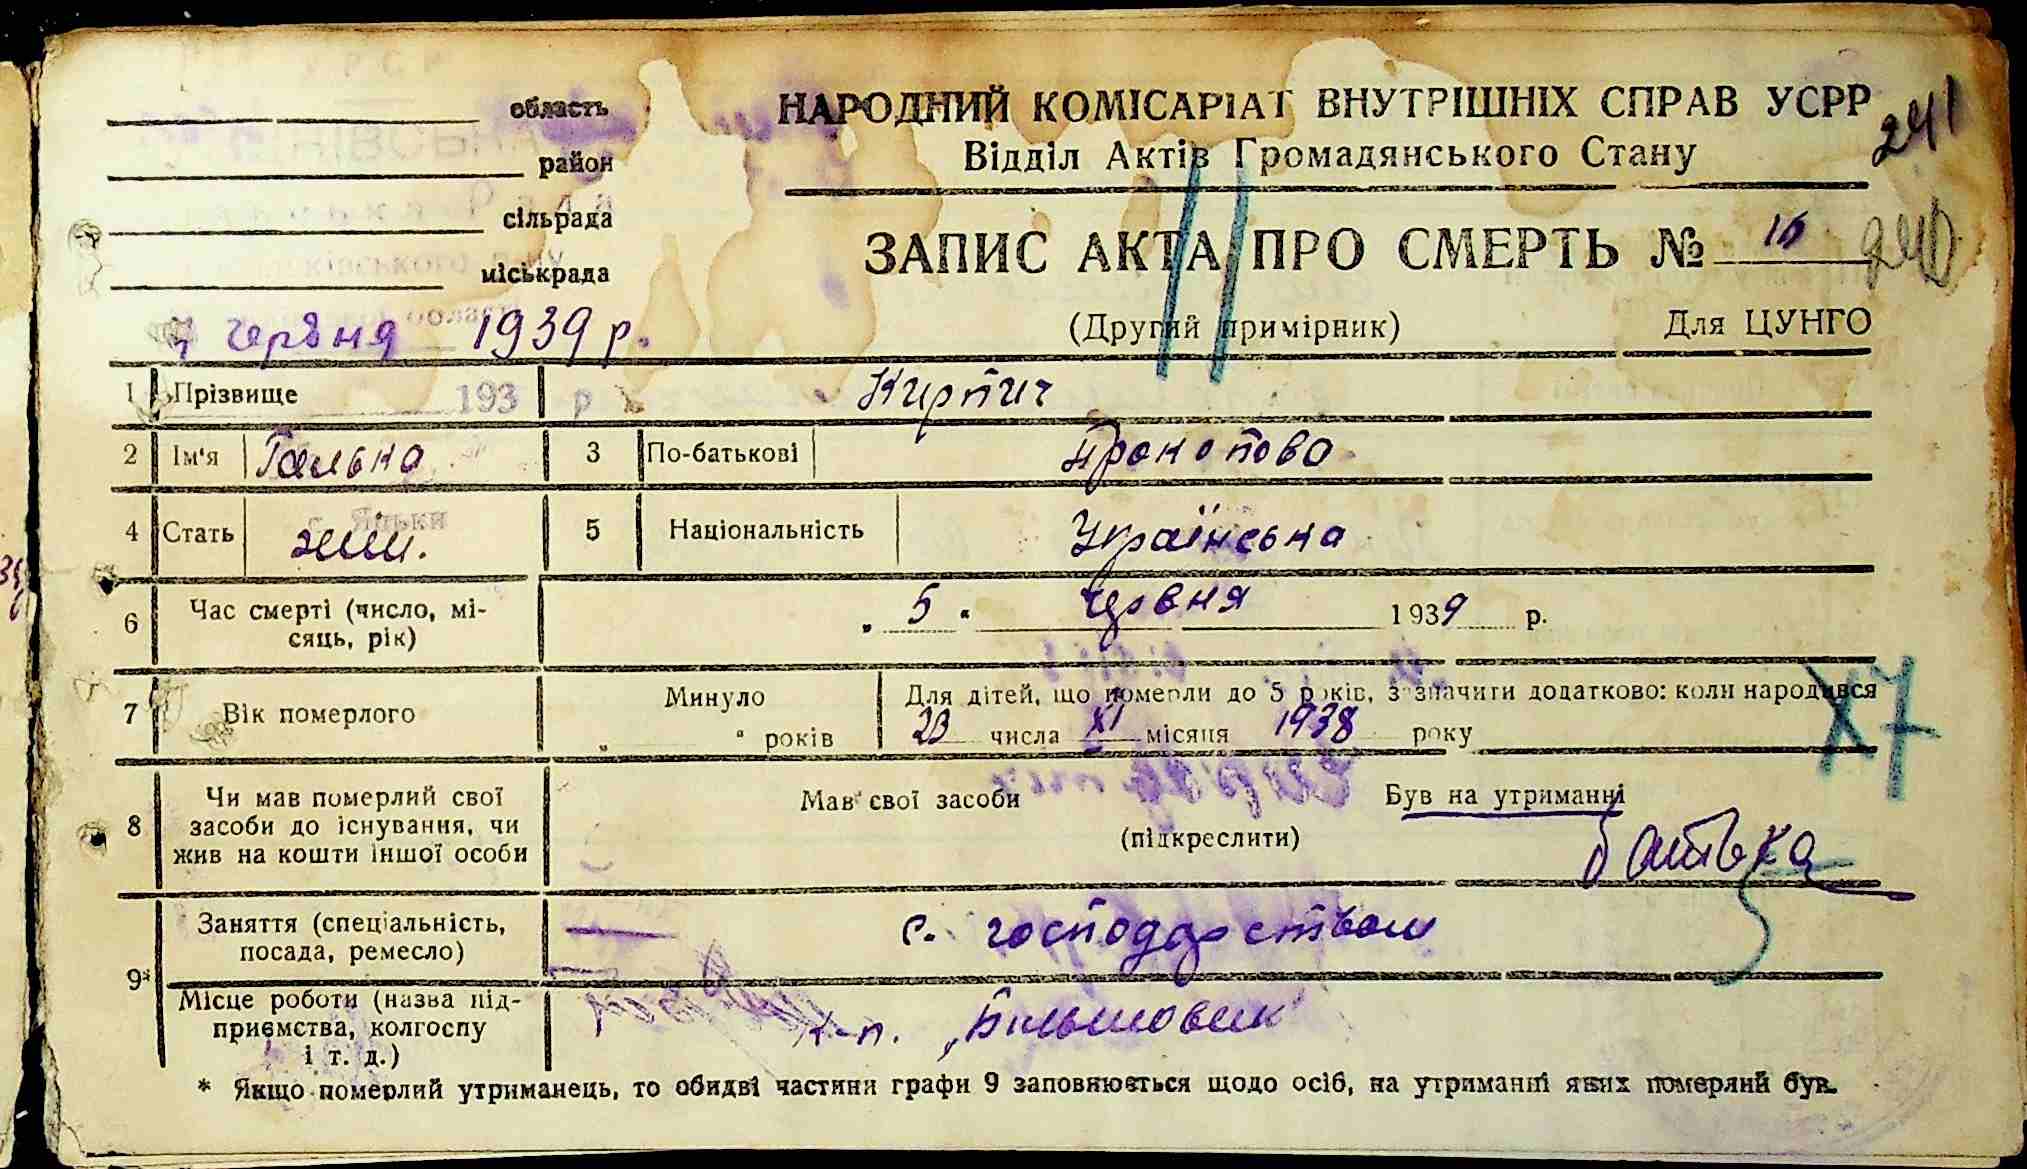 область
район
сільрада
міськрада
НАРОДНИЙ КОМІСАРІАТ ВНУТРІШНІХ СПРАВ УСРР
Відділ Актів Громадянського Стану
241
ЗАПИС АКТА ПРО СМЕРТЬ № 16
240
(Другий примірник) Для ЦУНГО
червня 1939 р.
1 Прізвище 193 р Кирпич
2 Ім'я Галька 3 По-батькові Прокопова
с. Яцьки
4 Стать жін. 5 Національність Українська
6 Час смерті (число, мі-
сяць, рік) „ 5 " червня 1939 р.
7 Вік померлого Минуло „ " років Для дітей, що померли до 5 років, зазначити додатково: коли народився
23 числа XI місяця 1938 року
X7
8 Чи мав померлий свої
засоби до існування, чи
жив на кошти іншої особи
Мав свої засоби Був на утриманні
(підкреслити)
батька
9* Заняття (спеціальність,
посада, ремесло) с. господарством
Місце роботи (назва під-
приємства, колгоспу
і т. д.) к-п. „Більшовик"
* Якщо померлий утриманець, то обидві частини графи 9 заповнюється щодо осіб, на утриманні яких померлий був.